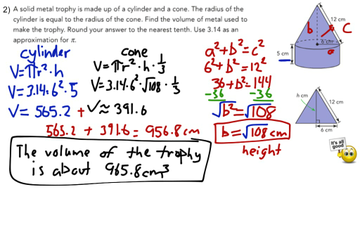 2) A solid metal trophy is made up of a cylinder and a cone. The radius of the
cylinder is equal to the radius of the cone. Find the volume of metal used to
make the trophy. Round your answer to the nearest tenth. Use 3.14 as an
approximation for π.
cylinder
V=πr²·h
V=3.14·6²·5
V= 565.2 +
cone
V=πr²·h·1/3
V=3.14·6²·√108·1/3
V≈391.6
565.2 + 391.6 = 956.8cm
The volume of the trophy
is about 965.8cm³
a²+b²=c²
6²+b²=12²
36+b²=144
-36 -36
√b²=√108
b=√108cm
height
12 cm
C
b
5 cm
a
h cm
12 cm
6 cm
It's all
good